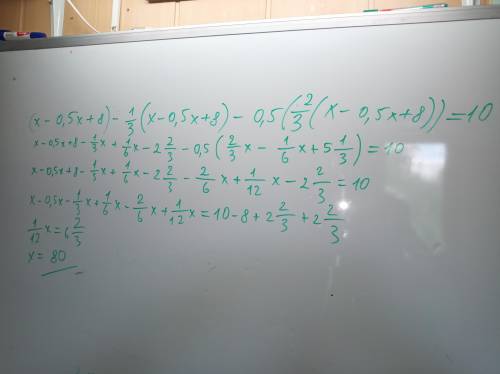 (x - 0,5x + 8) - 1/3 (x - 0,5x + 8) - 0,5 (2/3 (x - 0,5x + 8)) = 10
x - 0,5x + 8 - 1/3 x + 1/6 x - 2 2/3 - 0,5 (2/3 x - 1/6 x + 5 1/3) = 10
x - 0,5x + 8 - 1/3 x + 1/6 x - 2 2/3 - 2/6 x + 1/12 x - 2 2/3 = 10
x - 0,5x - 1/3 x + 1/6 x - 2/6 x + 1/12 x = 10 - 8 + 2 2/3 + 2 2/3
1/12 x = 6 2/3
x = 80